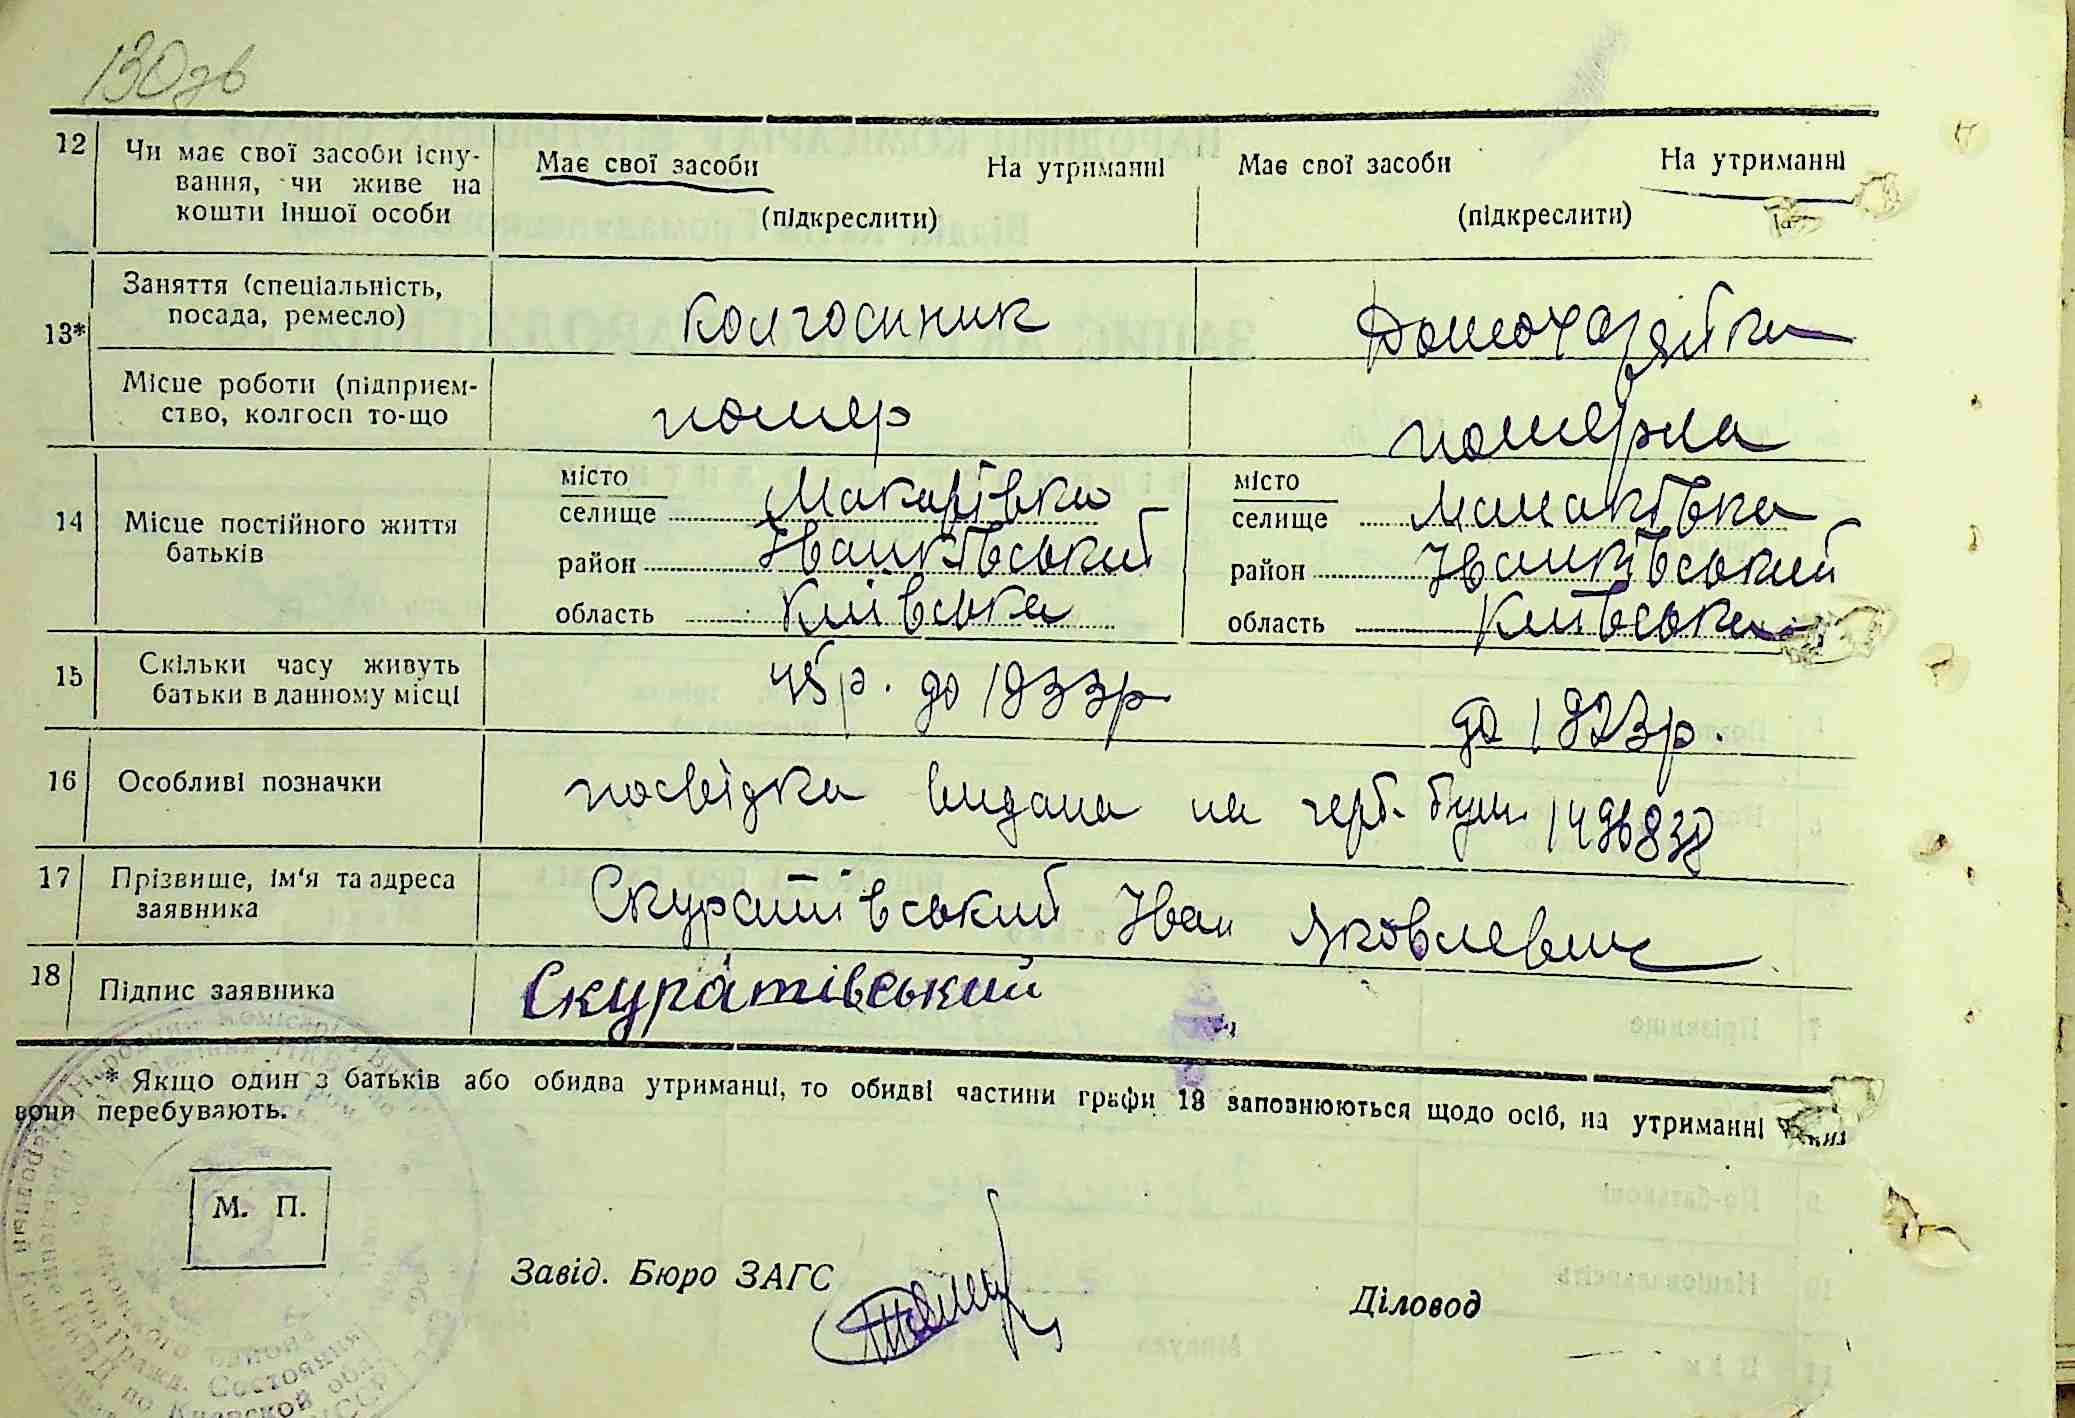 130 зв
12 Чи має свої засоби існу-
вання, чи живе на
кошти іншої особи
Має свої засоби На утриманні
(підкреслити)
Має свої засоби На утриманні
(підкреслити)
13*
Заняття (спеціальність,
посада, ремесло)
колгоспник
Домохазяйка
Місце роботи (підприєм-
ство, колгосп то-що
помер
померла
14 Місце постійного життя
батьків
місто
селище Макарівка
район Іванківський
область Київська
місто
селище
район Іванківський
область Київська
15 Скільки часу живуть
батьки в данному місці
45 р. до 1933р
до 1923р.
16 Особливі позначки
посвідка видана на герб. бум.
17 Прізвище, ім'я та адреса
заявника
Скуратівський Іван Яковлевич
18 Підпис заявника
Скуратівський
* Якщо один з батьків або обидва утриманці, то обидві частини графи 13 заповнюються щодо осіб, на утриманні яких
вони перебувають.
М. П.
Завід. Бюро ЗАГС
Діловод